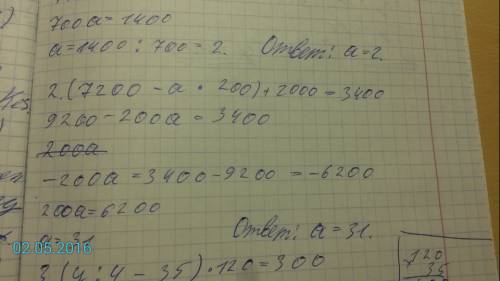 700a = 1400
a = 1400 : 700 = 2. Ответ: a = 2.
2. (7200 - a · 200) + 2000 = 3400
9200 - 200a = 3400
200a
-200a = 3400 - 9200 = -6200
200a = 6200
a = 31 Ответ: a = 31.
3 (y : 4 - 35) · 120 = 300
120
35
02.05.2016